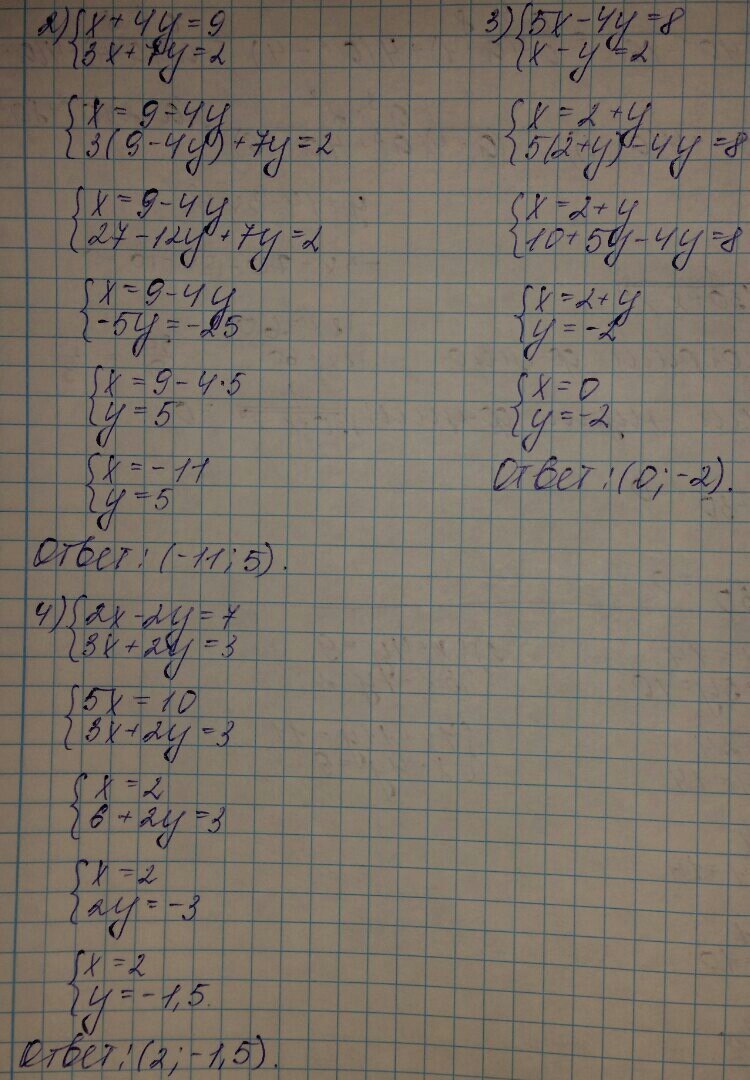 2) {x + 4y = 9
{3x + 7y = 2
{x = 9 - 4y
{3(9 - 4y) + 7y = 2
{x = 9 - 4y
{27 - 12y + 7y = 2
{x = 9 - 4y
{-5y = -25
{x = 9 - 4·5
{y = 5
{x = -11
{y = 5
Ответ: (-11; 5).
3) {5x - 4y = 8
{x - y = 2
{x = 2 + y
{5(2+y) - 4y = 8
{x = 2 + y
{10 + 5y - 4y = 8
{x = 2 + y
{y = -2
{x = 0
{y = -2
Ответ: (0; -2).
4) {2x - 2y = 7
{3x + 2y = 3
{5x = 10
{3x + 2y = 3
{x = 2
{6 + 2y = 3
{x = 2
{2y = -3
{x = 2
{y = -1,5
Ответ: (2; -1,5).